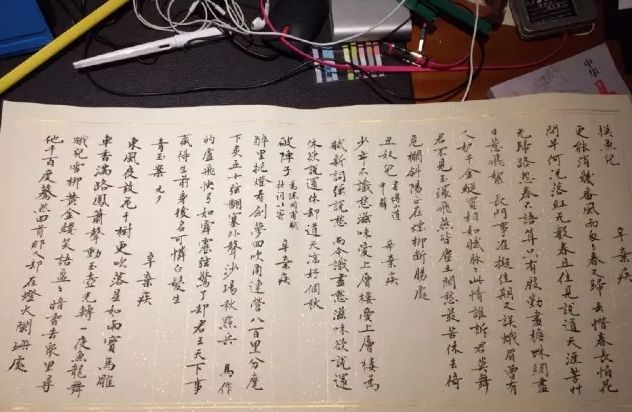 摸魚兒 辛棄疾
更能消幾番風雨匆匆春又歸去惜春長怕花
開早何況落紅無數春且住見說道天涯芳草
无歸路怨春不語算只有殷勤畫檐蛛網盡
日惹飛絮 長門事准擬佳期又誤蛾眉曾有
人妒千金縱買相如賦脉々此情誰訴君莫舞
君不見玉環飛燕皆塵土閑愁最苦休去倚
危欄斜陽正在煙柳斷腸處
丑奴兒 書博山道中壁 辛棄疾
少年不識愁滋味愛上層樓愛上層樓爲
賦新詞強說愁 而今識盡愁滋味欲說還
休欲說還休却道天凉好個秋
破陣子 爲陳同甫賦壯詞以寄 辛棄疾
醉里挑燈看劍夢回吹角連營八百里分麾
下炙五十弦翻塞外聲沙場秋點兵 馬作
的盧飛快弓如霹靂弦驚了却君王天下事
贏得生前身後名可憐白髮生
青玉案 元夕 辛棄疾
東風夜放花千樹更吹落星如雨寶馬雕
車香滿路鳳簫聲動玉壺光轉一夜魚龍舞
蛾兒雪柳黃金縷笑語盈々暗香去衆里尋
他千百度驀然回首那人却在燈火闌珊處
中华